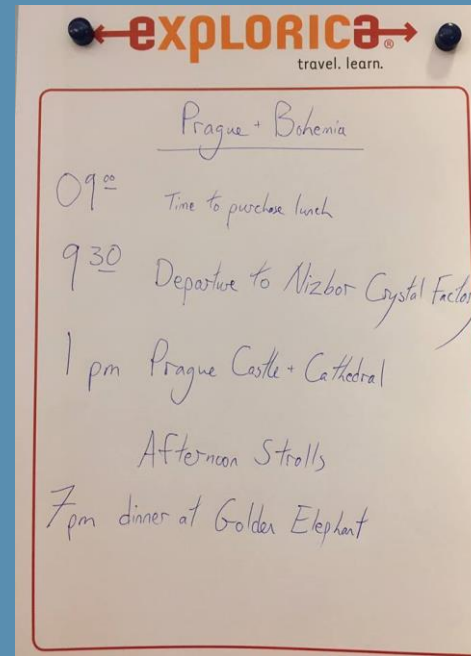 explorica®
travel. learn.
Prague + Bohemia
09⁰⁰ Time to purchase lunch
9 30 Departure to Nizbor Crystal Factory
1 pm Prague Castle + Cathedral
Afternoon Strolls
7pm dinner at Golden Elephant